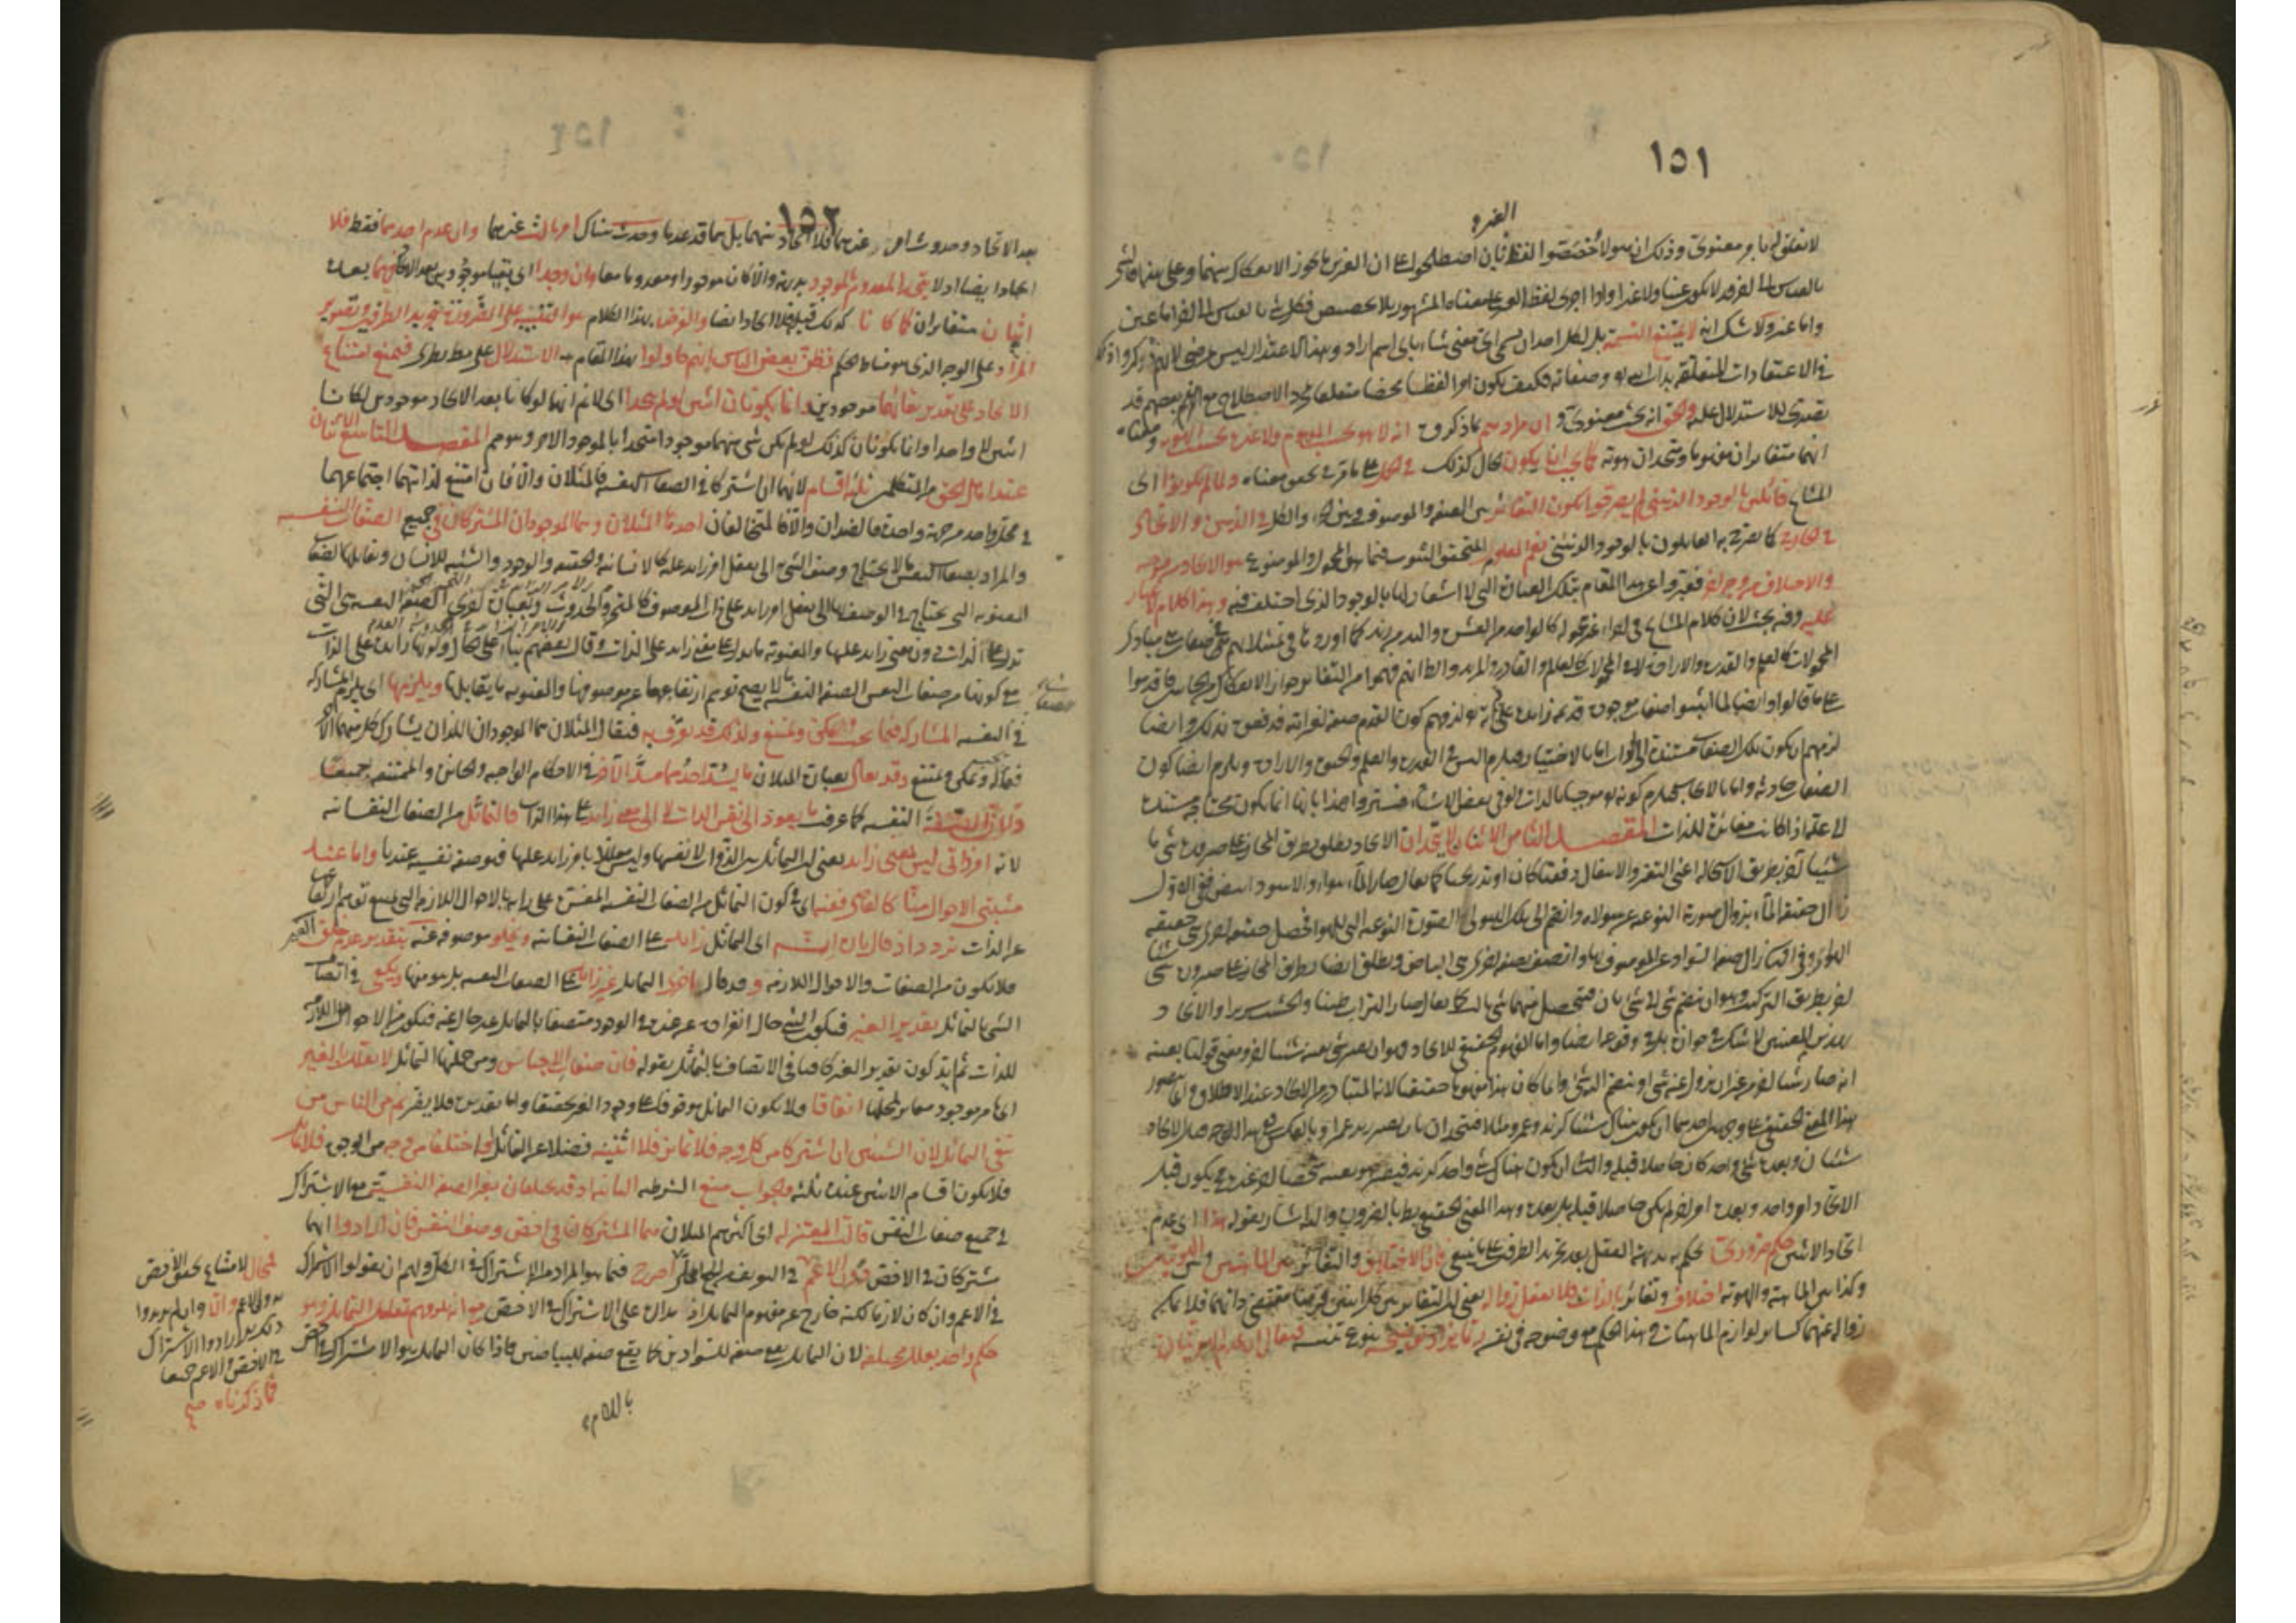 ١٥١
الغيرة
لا تعلق له بامر معنوي وذلك ان هولاء خصصوا لفظ بان اصطلحوا على ان الغيرين ما يجوز الانفكاك بينهما وعلى هذا فالشئ
بالقياس الى الاخر قد لا يكون عينا ولا غيرا واذا اجرى لفظ الغير على معناه المشهور بلا تخصيص فكل شئ بالقياس الى اخر اما عين
واما غير ولا شك انه لا يمتنع التسمية بل لكل احد ان يسمى اي معنى شاء باي اسم اراد وهذا الاعتذار ليس بمرضي لانهم ذكروا ذلك
في الاعتقادات المتعلقة بذات الله وصفاته فكيف يكون امرا لفظيا محضا متعلقا بمجرد الاصطلاح مع ان بعضهم قد
تصدى للاستدلال عليه والحق انه بحث معنوي وان مرادهم بما ذكروه انه لا هو بحسب المفهوم ولا غيره بحسب الهوية ومعناه
انهما متغايران مفهوما ومتحدان هوية كما يجب ان يكون الحال كذلك في الحمل على ما مر في تحقيق معناه ولما لم يكونوا اي
المشايخ قائلين بالوجود الذهني لم يصرحوا بكون التغاير بين الصفة والموصوف وبين الجزء والكل في الذهن والاتحاد
في الخارج كما صرح به القائلون بالوجود الذهني نعم المعلوم المتحقق الثبوت فيما بين المحمول والموضوع هو الاتحاد من وجه
والاختلاف من وجه آخر فعبروا عن هذا المقام بتلك العبارة التي لا اشعار لها بالوجود الذي اختلف فيه وهذا كلام لا غبار
عليه وفيه بحث لان كلام المشايخ في اجزاء غير محمولة كالواحد من العشرة واليد من زيد كما اوردوها في تمثيلاتهم وفي صفات هي مبادئ
المحمولات كالعلم والقدرة والارادة لا في المحمولات كالعالم والقادر والمريد والظاهر انهم فهموا من التغاير جواز الانفكاك من الجانبين فاقدموا
على ما قالوا وايضا لما اثبتوا صفات موجودة قديمة زائدة على ذاته تعالى لزمهم كون القدم صفة لغير الله فدفعوه بذلك وايضا
لزمهم ان يكون تلك الصفات مستندة الى الذات اما بالاختيار فيلزم التسلسل في القدرة والعلم والحيوة والارادة ويلزم ايضا كون
الصفات حادثة واما بالايجاب فيلزم كونه تعالى موجبا بالذات ولو في بعض الاشياء فتستروا عن هذا بانها انما يكون محتاجة مستندة
الى علة اذا كانت مغايرة للذات المقصد الثامن الاثنان لا يتحدان الاتحاد يطلق بطريق المجاز على صيرورة شئ ما
شيئا آخر بطريق الاستحالة اعني التغير والانتقال دفعيا كان او تدريجيا كما يقال صار الماء هواء والاسود ابيض ففي الاول
زال حقيقة الماء بزوال صورته النوعية عن هيولاه وانضم الى تلك الهيولى الصورة النوعية التي للهواء فحصل حقيقة اخرى هي حقيقة
الهواء وفي الثاني زال صفة السواد عن الموصوف بها واتصف بصفة اخرى هي البياض ويطلق ايضا بطريق المجاز على صيرورة شئ شيئا
آخر بطريق التركيب وهو ان ينضم شئ الى شئ ثان فيحصل منهما شئ ثالث كما يقال صار التراب طينا والخشب سريرا والاتحاد
بهذين المعنيين لا شك في جوازه بل في وقوعه ايضا واما المفهوم الحقيقي للاتحاد فهو ان يصير شئ بعينه شيئا آخر ومعنى قولنا بعينه
انه صار شيئا آخر من غير ان يزول عنه شئ او ينضم اليه شئ وانما كان هذا مفهوما حقيقيا لانه المتبادر من الاتحاد عند الاطلاق وانما يتصور
هذا المعنى الحقيقي على وجهين احدهما ان يكون هناك شيئان كزيد وعمرو مثلا فيتحدان بان يصير زيد عمرا وبالعكس ففي هذا الوجه قبل الاتحاد
شيئان وبعده شئ واحد كان حاصلا قبله والثاني ان يكون هناك شئ واحد كزيد فيصير هو بعينه شخصا آخر غيره فيكون قبل
الاتحاد امر واحد وبعده امر آخر لم يكن حاصلا قبله بل بعده وهذا المعنى الحقيقي بط بالضرورة واليه اشار بقوله هذا اي عدم
اتحاد الاثنين حكم ضروري يحكم به بديهة العقل بعد تجريد الطرفين على ما ينبغي فان الاختلاف والتغاير بين الماهيتين وبين الهويتين
وكذا بين الماهية والهوية اختلاف وتغاير بالذات فلا يعقل زواله يعني ان التغاير بين كل اثنين فرضا مقتضى ذاتهما فلا يمكن
زواله عنهما كسائر لوازم الماهيات وهذا الحكم مع وضوحه في نفسه ربما يزاد توضيحه بنوع تنبيه فيقال ان عدم الهويتان
١٥٢
بعد الاتحاد وحدث امر غيرهما فلا اتحاد بينهما بل هما قد عدما وحدث هناك امر ثالث غيرهما وان عدم احدهما فقط فلا
اتحاد ايضا اذ لا يتحد المعدوم بالموجود بديهة والا كان موجودا ومعدوما معا وان وجدا اي بقيا موجودين بعد الاتحاد فهما بعده
اثنان متغايران كما كانا كذلك قبله فلا اتحاد ايضا والغرض بهذا الكلام هو التنبيه على الضرورة بتجريد الطرفين وتصوير
المراد على الوجه الذي هو مناط الحكم فظن بعض الناس انهم حاولوا بهذا المقام به الاستدلال على مط نظري فمنع امتناع
الاتحاد على تقدير بقائهما موجودين وانما يكونان اثنين لو لم يتحدا اي لا نم انهما لو كانا بعد الاتحاد موجودين لكانا
اثنين لا واحدا وانما يكونان كذلك لو لم يكن شئ منهما موجودا متحدا بالموجود الاخر وهو مم المقصد التاسع الاثنان
عند اهل الحق من المتكلمين ثلثة اقسام لانهما ان اشتركا في الصفات النفسية فالمثلان والا فان امتنع لذاتيهما اجتماعهما
في محل واحد من جهة واحدة فالضدان والا فالمتخالفان احدها المثلان وهما الموجودان المشتركان في جميع الصفات النفسية
والمراد بصفات النفس ما لا يحتاج وصف الشئ به الى تعقل امر زائد عليه كالانسانية والحقيقة والوجود والشيئية للانسان ويقابلها الصفات
المعنوية التي يحتاج في الوصف بها الى تعقل امر زائد على ذات الموصوف كالتحيز والحدوث وبعبارة اخرى الصفة النفسية هي التي
تدل على الذات دون معنى زائد عليها والمعنوية ما يدل على معنى زائد على الذات وقال بعضهم بناء على الحال وكونها زائدة على الذات
مع كونها من صفات النفس الصفة النفسية ما لا يصح توهم ارتفاعها عن موصوفها والمعنوية ما يقابلها ويلزمها اي يلزم المشاركة
في النفسية المشاركة فيما يجب ويمكن ويمتنع ولذلك قد يعرف به فيقال المثلان هما الموجودان اللذان يشارك كل منهما الآخر
فيما له ويمكن ويمتنع وقد يقال بعبارة المثلان ما يسد احدهما مسد الآخر في الاحكام الواجبة والجائزة والممتنعة جميعا
ولان الصفة النفسية كما عرفت ما يعود الى نفس الذات لا الى معنى زائد على هذا الذات فالتماثل من الصفات النفسانية
لانه امر ذاتي ليس لمعنى زائد يعني ان التماثل بين الذوات لانفسها وليس معللا بامر زائد عليها فهو صفة نفسية عندنا واما عند
مثبتي الاحوال منا كالقاضي ففيه اي في كون التماثل من الصفات النفسية المفسرة على رايه بالاحوال اللازمة التي يمتنع توهم ارتفاعها
عن الذات تردد اذ قال بان انه اي التماثل زائد على الصفات النفسانية ويخلو موصوفه عنه بتقدير عدم خلق الغير
فلا يكون من الصفات والاحوال اللازمة وقد قال اخرى التماثل غير زائد على الصفات النفسية بل هو منها ويكفي في اتصاف
الشئ بالتماثل تقدير الغير فيكون الشئ حال انفراده عن غيره في الوجود متصفا بالتماثل غير خال عنه فيكون من الاحوال اللازمة
للذات ثم ايد كون تقدير الغير كافيا في الاتصاف بالتماثل بقوله فان صفات الاجناس ومن جملتها التماثل لا يعقل بالغير
اي بامر موجود مغاير لمحلها اتفاقا فلا يكون التماثل موقوفا على وجود الغير تحقيقا واما تقديره فلا يضر ثم من الناس من
نفى التماثل لان الشيئين ان اشتركا من كل وجه فلا تمايز فلا اثنينية فضلا عن التماثل وان اختلفا من وجه من الوجوه فلا تماثل
فلا يكون اقسام الاثنين عنده ثلثة والجواب منع الشرطية الثانية اذ قد يختلفان بغير الصفة النفسية مع الاشتراك
في جميع صفات النفس قالت المعتزلة اي اكثرهم المثلان هما المشتركان في اخص وصف النفس فان ارادوا انهما
مشتركان في الاخص دون الاعم
في الاعم وان كان لازما لكنه خارج عن مفهوم التماثل
حكم واحد بعلل مختلفة لان التماثل يقع صفة للسوادين كما يقع صفة للبياضين فاذا كان التماثل هو الاشتراك في اخص
فمحال لامتناع تحقق الاخص
بدون الاعم والا وان لم يريدوا
ذلك بل ارادوا الاشتراك
في الاخص والاعم جميعا
فما ذكرناه صح